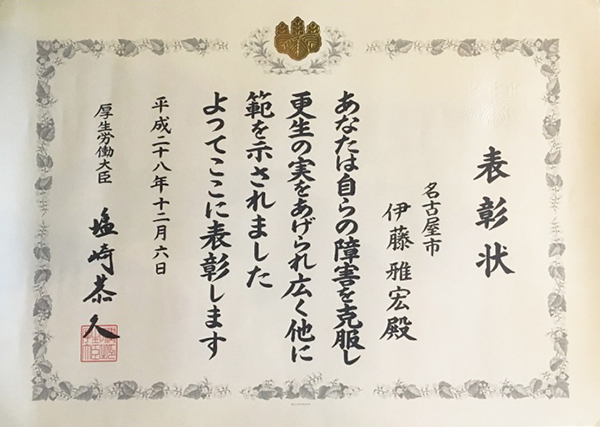 表彰状
名古屋市
伊藤雅宏殿
あなたは自らの障害を克服し
更生の実をあげられ広く他に
範を示されました
よってここに表彰します
平成二十八年十二月六日
厚生労働大臣
塩崎恭久